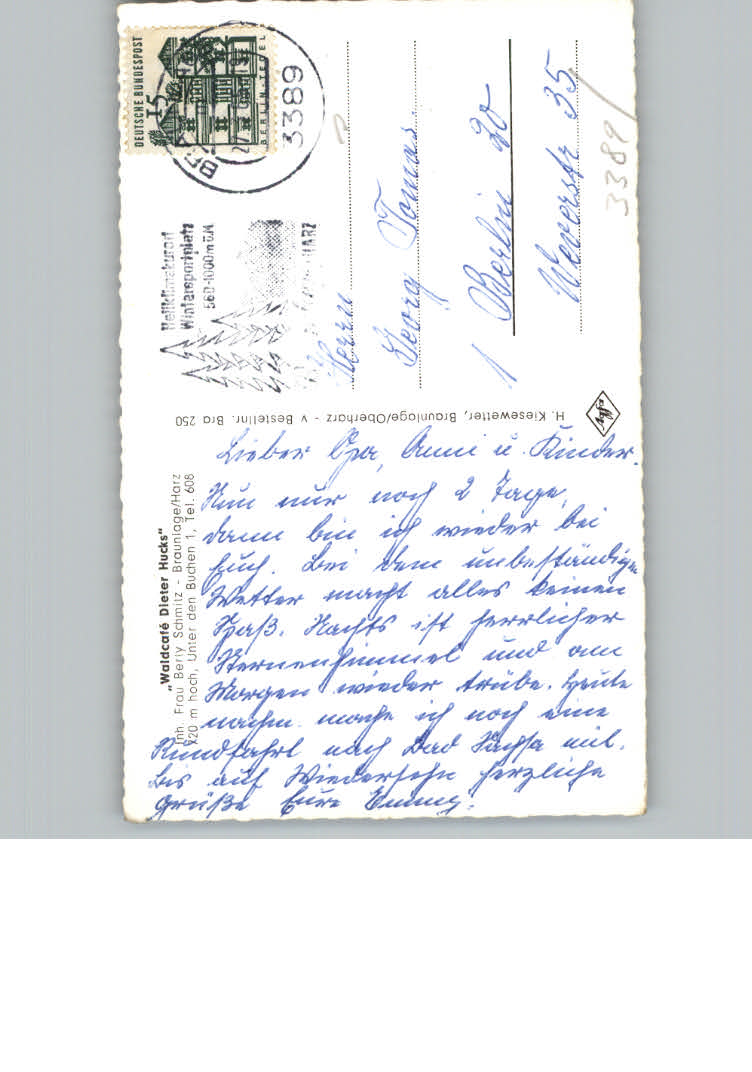 DEUTSCHE BUNDESPOST
15
BERLIN-TEGEL
3389
Heilklimakurort
Wintersportplatz
560-1000m ü.M
HARZ
Herrn
Georg Tomas.
1 Berlin 20
Weverstr 35
3389
H. Kiesewetter, Braunlage/Oberharz - v Bestellnr. Bra 250
"Waldcafé Dieter Hucks"
Inh. Frau Berly Schmitz - Braunlage/Harz
620 m hoch, Unter den Buchen 1, Tel. 608
Lieber Opa, Anni u. Kinder.
Nun nur noch 2 Tage,
dann bin ich wieder bei
Euch. Bei dem unbeständige
Wetter macht alles keinen
Spaß. Nachts ist herrlicher
Sternenhimmel und am
Morgen wieder trübe. Heute
nachm. mache ich noch eine
Rundfahrt nach Bad Sachsa mit.
Bis auf Wiedersehn herzliche
Grüße Eure Emmy.